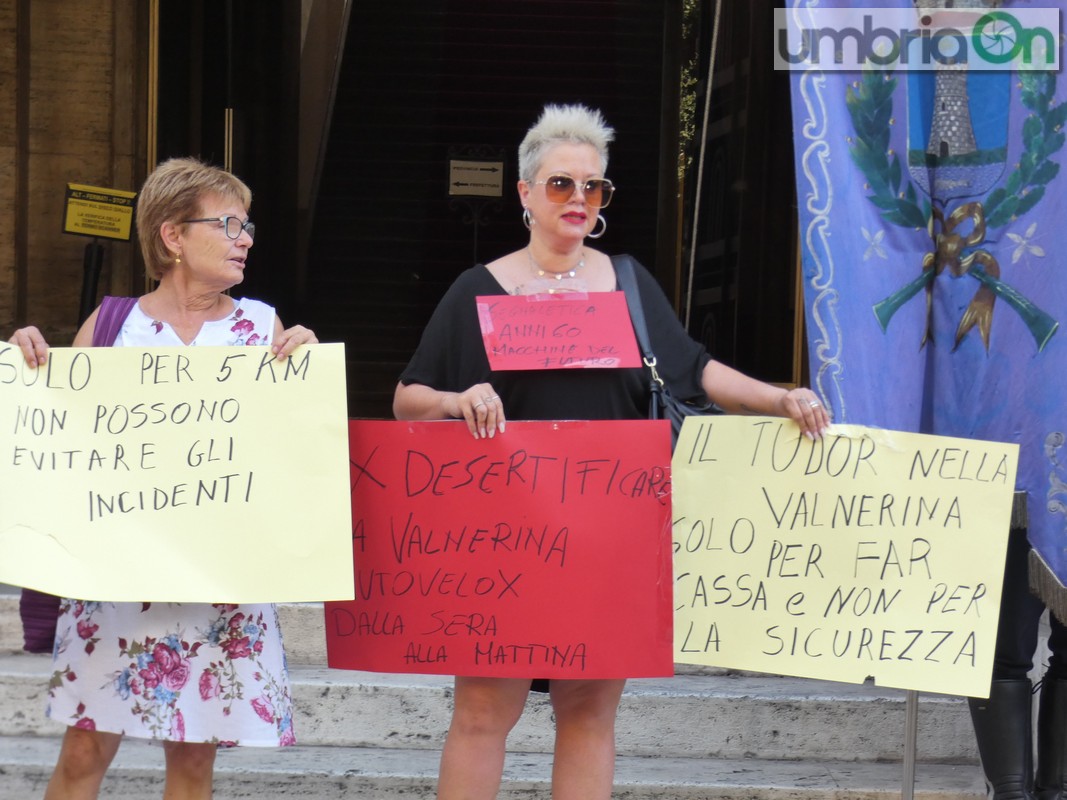 umbriaOn
ALT - FORMATI - STOP!
SOLO PER 5 KM
NON POSSONO
EVITARE GLI
INCIDENTI
SEGNALETICA
ANNI 60
MACCHINE DEL
FUTURO
X DESERTIFICARE
A VALNERINA
AUTOVELOX
DALLA SERA
ALLA MATTINA
IL TUDOR NELLA
VALNERINA
SOLO PER FAR
CASSA e NON PER
LA SICUREZZA